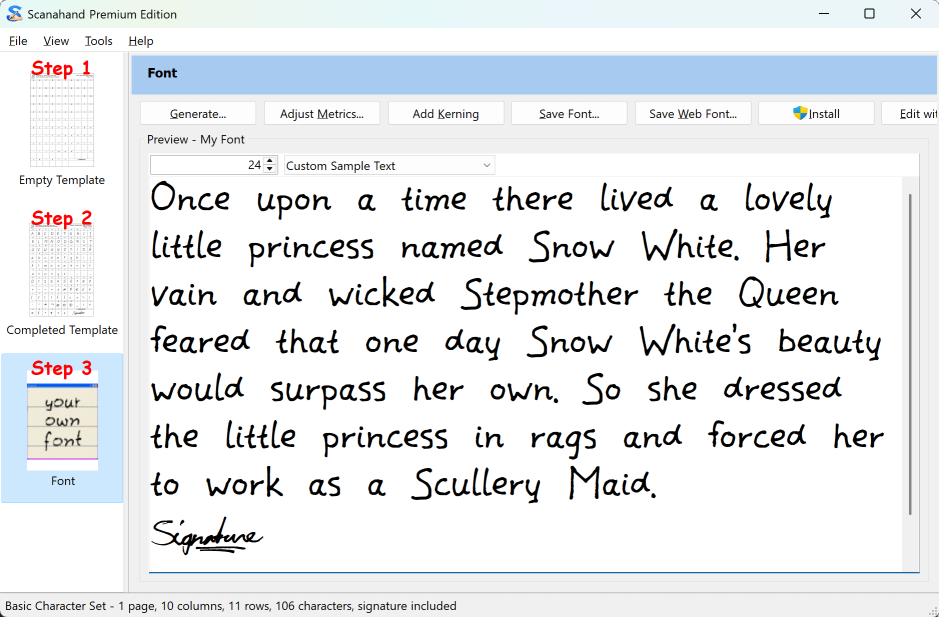 Scanahand Premium Edition
File View Tools Help
Step 1
Empty Template
Step 2
Completed Template
Step 3
your
own
font
Font
Font
Generate... Adjust Metrics... Add Kerning Save Font... Save Web Font... Install Edit wit
Preview - My Font
24 Custom Sample Text
Once upon a time there lived a lovely
little princess named Snow White. Her
vain and wicked Stepmother the Queen
feared that one day Snow White's beauty
would surpass her own. So she dressed
the little princess in rags and forced her
to work as a Scullery Maid.
Signature
Basic Character Set - 1 page, 10 columns, 11 rows, 106 characters, signature included